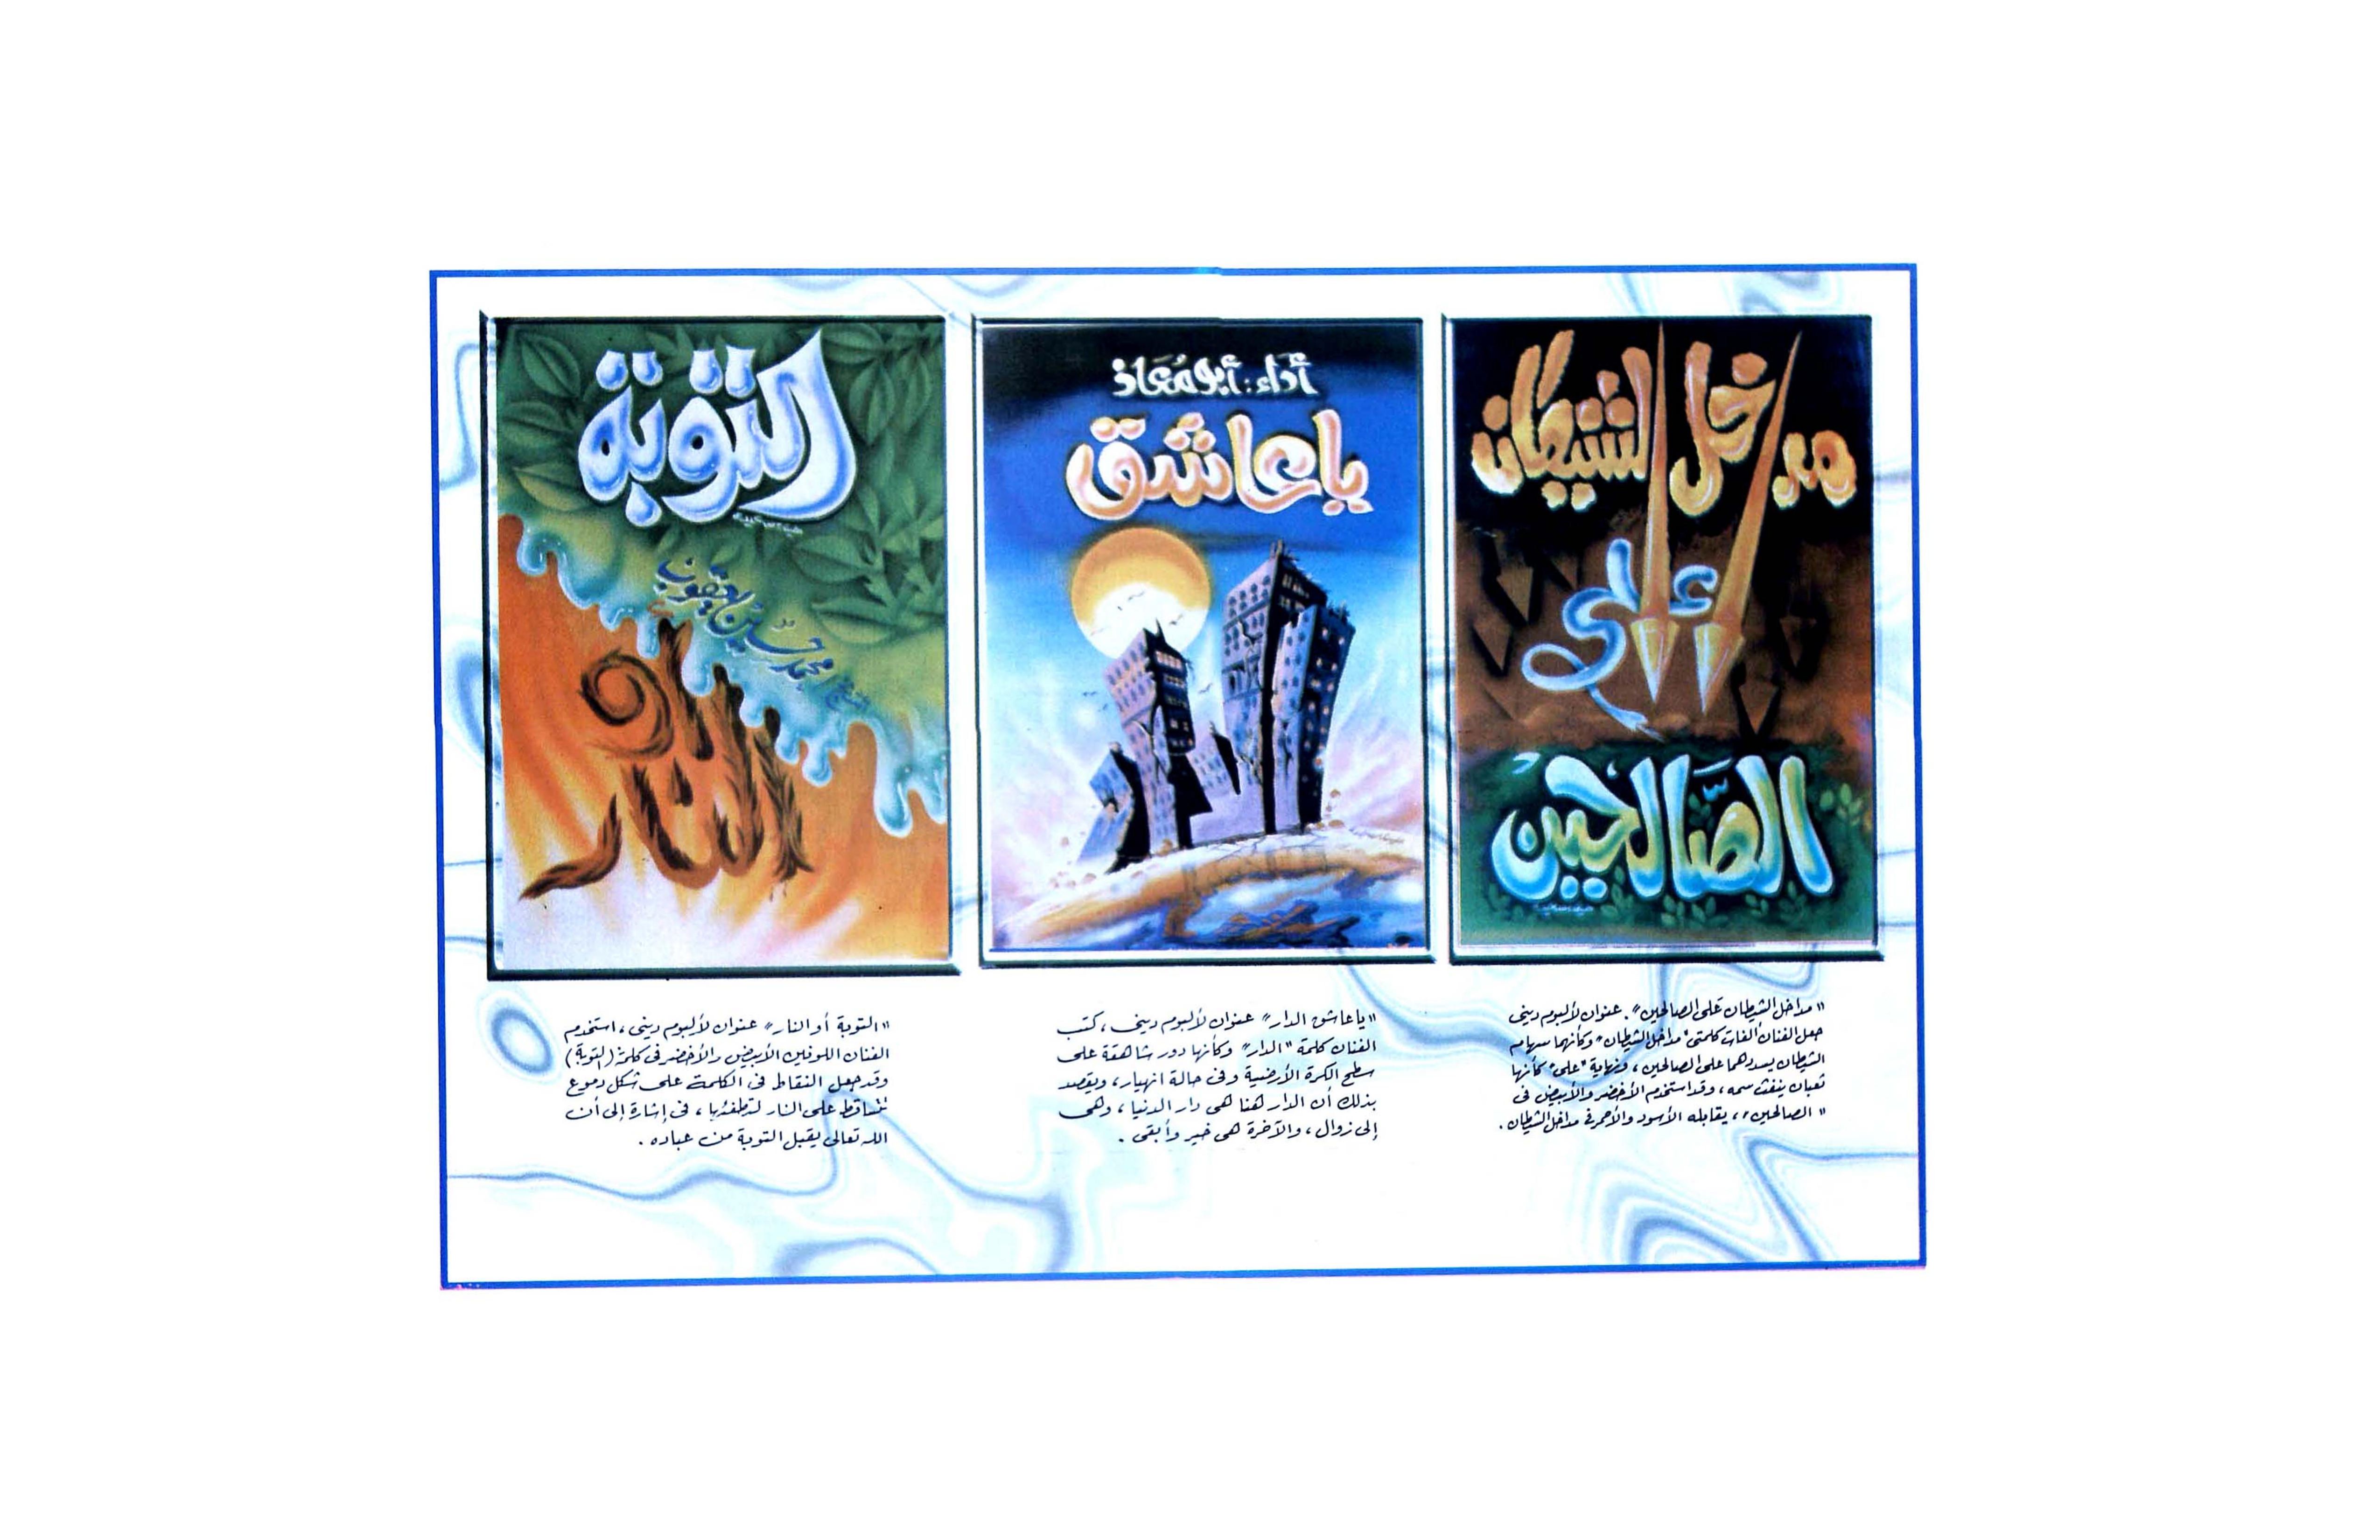 مداخل الشيطان
على
الصالحين
أداء: أبو مُعَاذ
يا عاشق
التوبة
الشيخ محمد حسين يعقوب
أو
النار
"مداخل الشيطان على الصالحين". عنوان لألبوم دينى
جعل الفنان ألفات كلمتى "مداخل الشيطان" وكأنهما سهام
الشيطان يسددهما على الصالحين، ونهاية "على" كأنها
ثعبان ينفث سمه، وقد استخدم الأخضر والأبيض فى
"الصالحين"، يقابله الأسود والأحمر فى مداخل الشيطان.
"يا عاشق الدار" عنوان لألبوم دينى، كتب
الفنان كلمة "الدار" وكأنها دور شاهقة على
سطح الكرة الأرضية وفى حالة انهيار، ويقصد
بذلك أن الدار هنا هى دار الدنيا، وهى
إلى زوال، والآخرة هى خير وأبقى.
"التوبة أو النار" عنوان لألبوم دينى، استخدم
الفنان اللونين الأبيض والأخضر فى كلمة (التوبة)
وقد جعل النقاط فى الكلمة على شكل دموع
تتساقط على النار لتطفئها، فى إشارة إلى أن
الله تعالى يقبل التوبة من عباده.